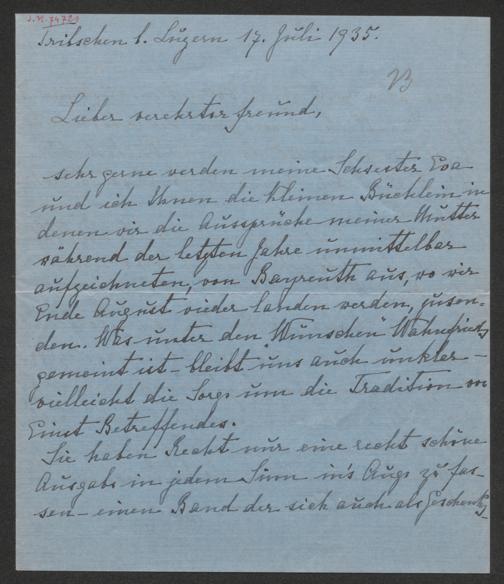 J.N. 74721
Tribschen b. Luzern 17. Juli 1935.
Lieber verehrter Freund,
sehr gerne werden meine Schwester Eva
und ich Ihnen die kleinen Büchlein in
denen wir die Aussprüche meiner Mutter
während der letzten Jahre unmittelbar
aufzeichneten, von Bayreuth aus, wo wir
Ende August wieder landen werden, zusen-
den. Was unter den Wünschen Wahnfrieds
gemeint ist – bleibt uns auch unklar –
vielleicht die Sorge um die Tradition von
Einst Betreffendes.
Sie haben Recht nur eine recht schöne
Ausgabe in jedem Sinn in's Auge zu fas-
sen – einen Band der sich auch als Geschenk